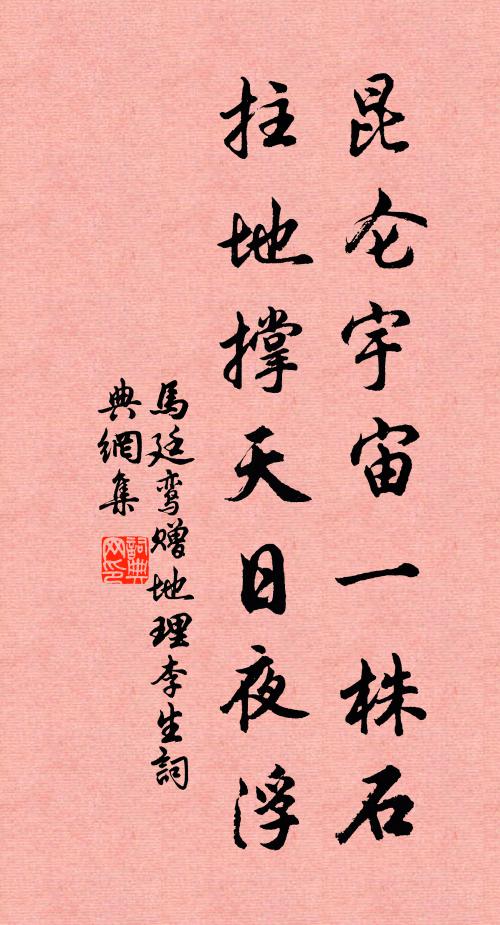 昆仑宇宙一株石
拄地撑天日夜浮
馬廷鸾赠地理李生詞
典網集
詞典網印